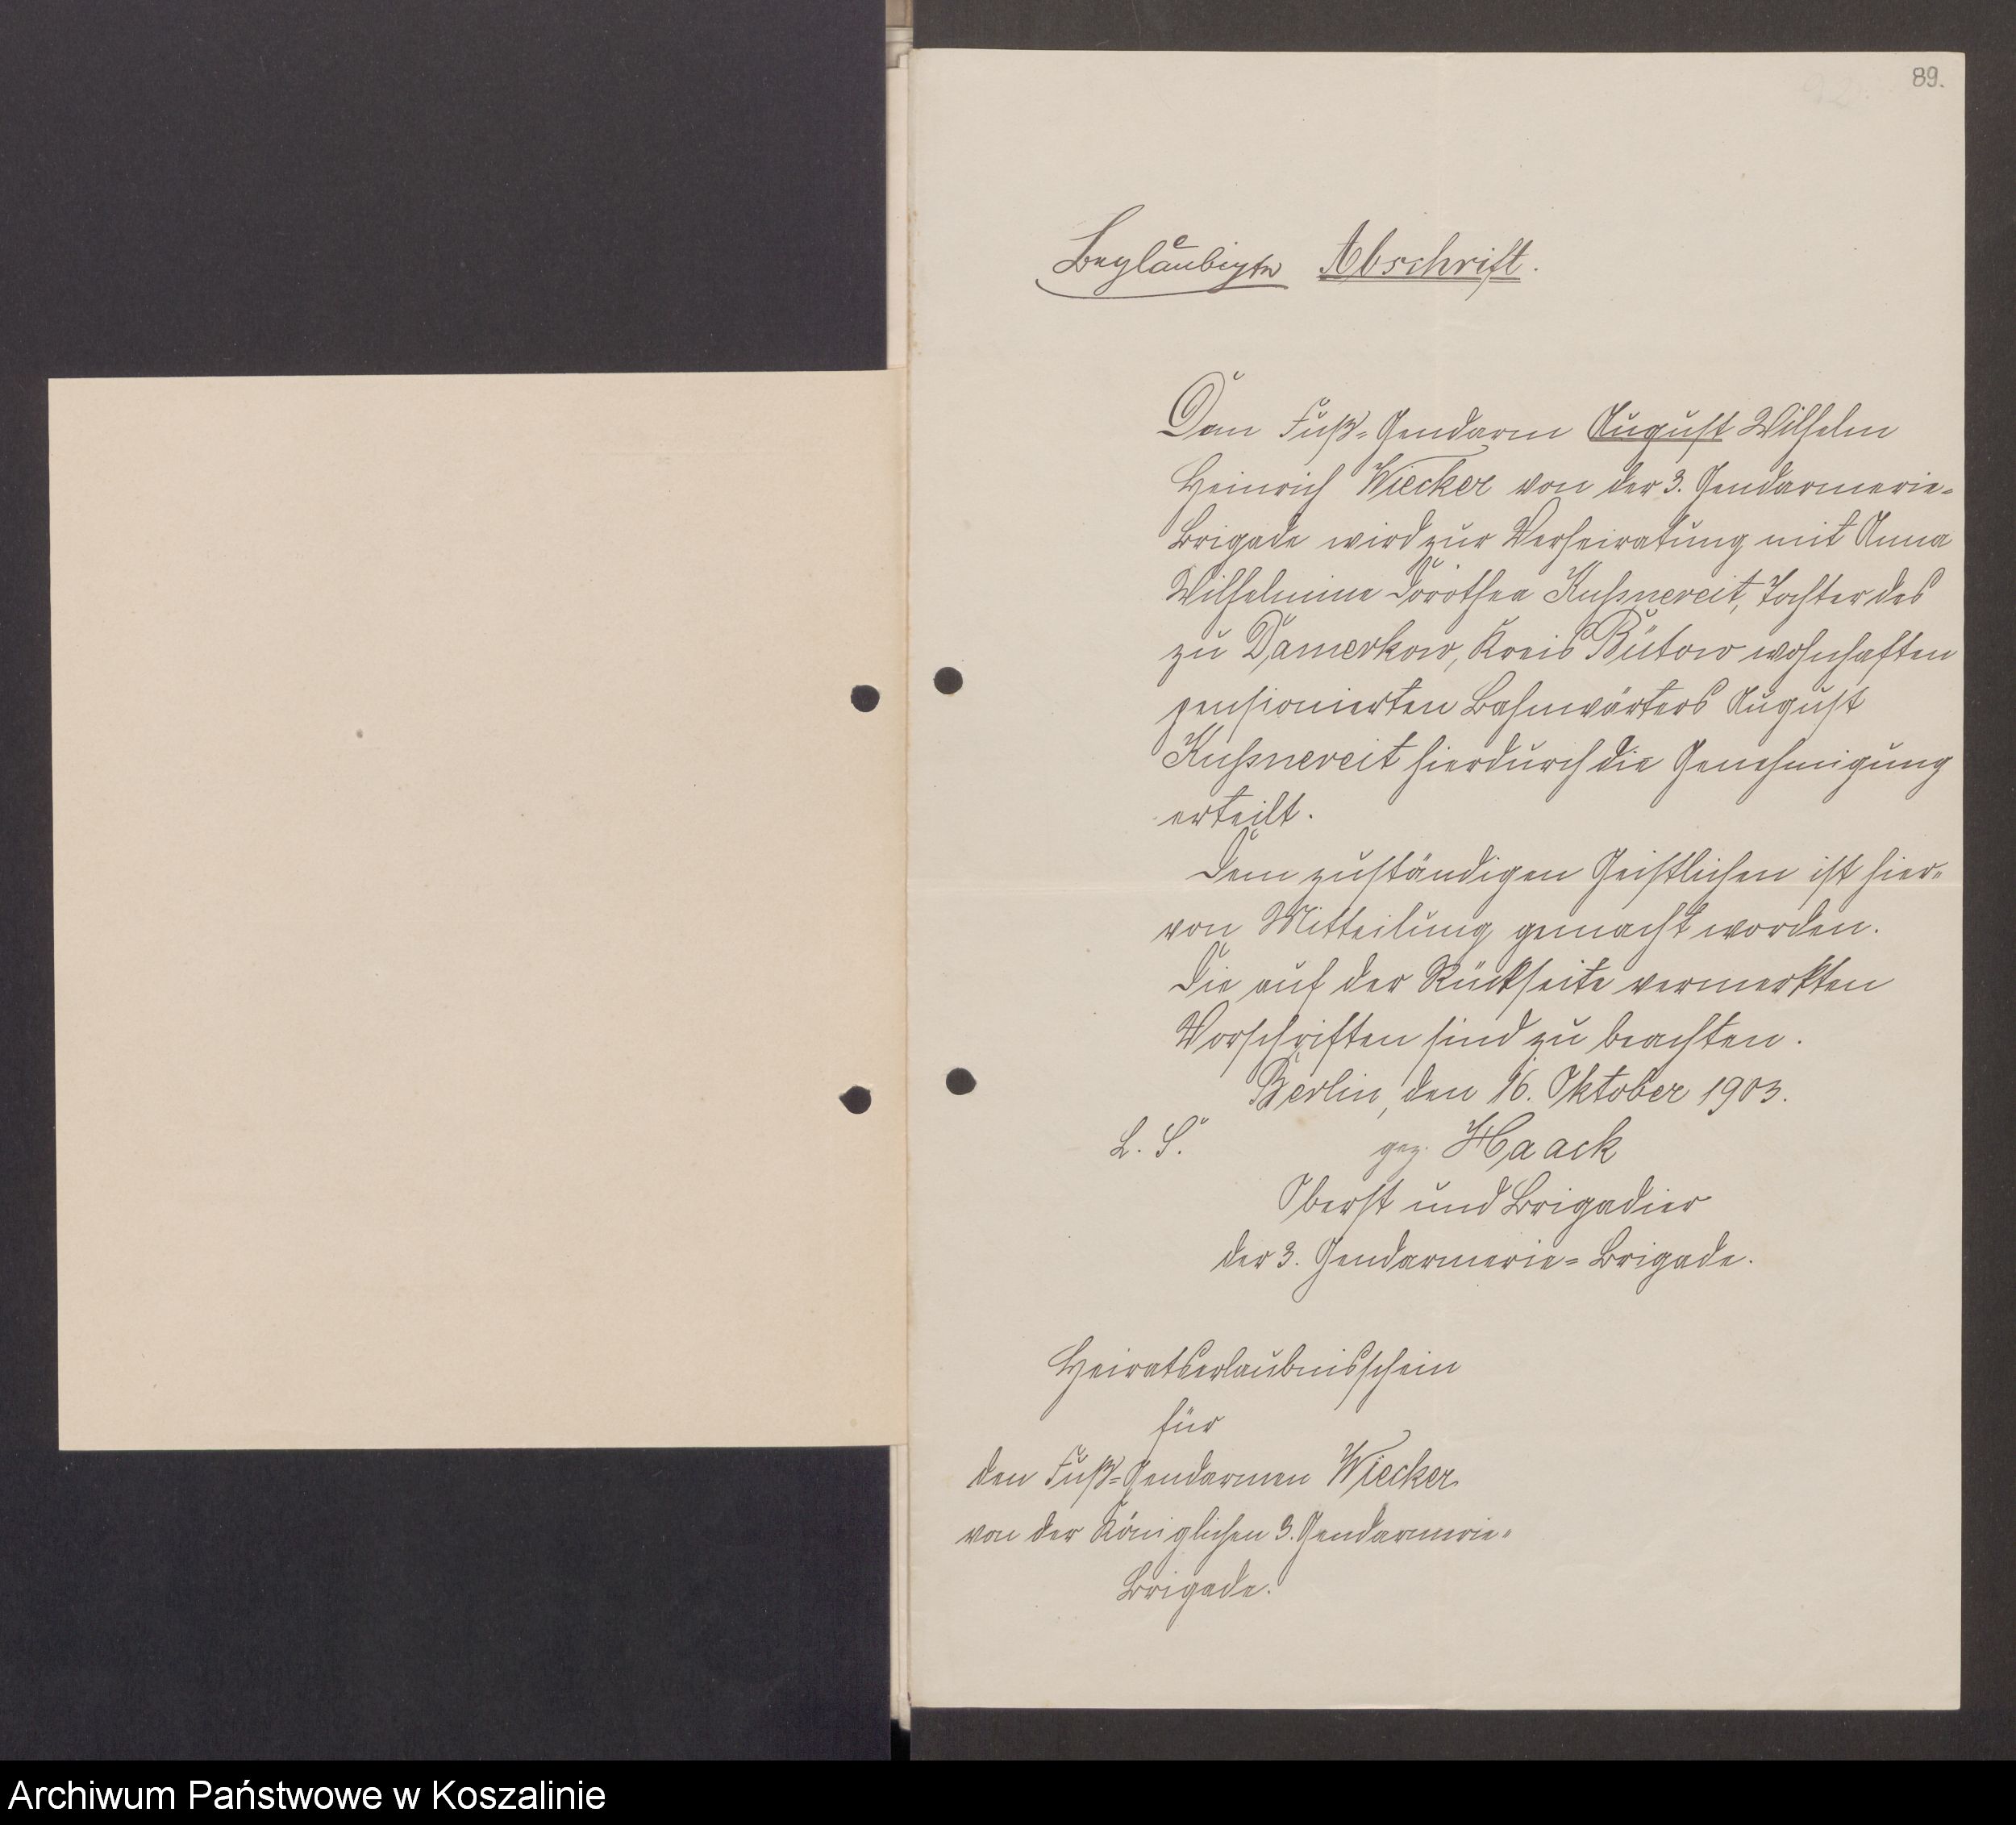 89.
Beglaubigte Abschrift.
Dem Fuß-Gendarm August Wilhelm
Heinrich Wiecker von der 3. Gendarmerie-
Brigade wird zur Verheiratung mit Anna
Wilhelmine Dorothea Kußnereit, Tochter des
zu Damerkow, Kreis Bütow wohnhaften
pensionierten Bahnwärters August
Kußnereit hierdurch die Genehmigung
erteilt.
Dem zuständigen Geistlichen ist hier-
von Mitteilung gemacht worden.
Die auf der Rückseite vermerkten
Vorschriften sind zu beachten.
Berlin, den 16. Oktober 1903.
L. S. gez. Haack
Oberst und Brigadier
der 3. Gendarmerie-Brigade.
Heiratserlaubnisschein
für
den Fuß-Gendarmen Wiecker
von der Königlichen 3. Gendarmerie-
Brigade.
Archiwum Państwowe w Koszalinie